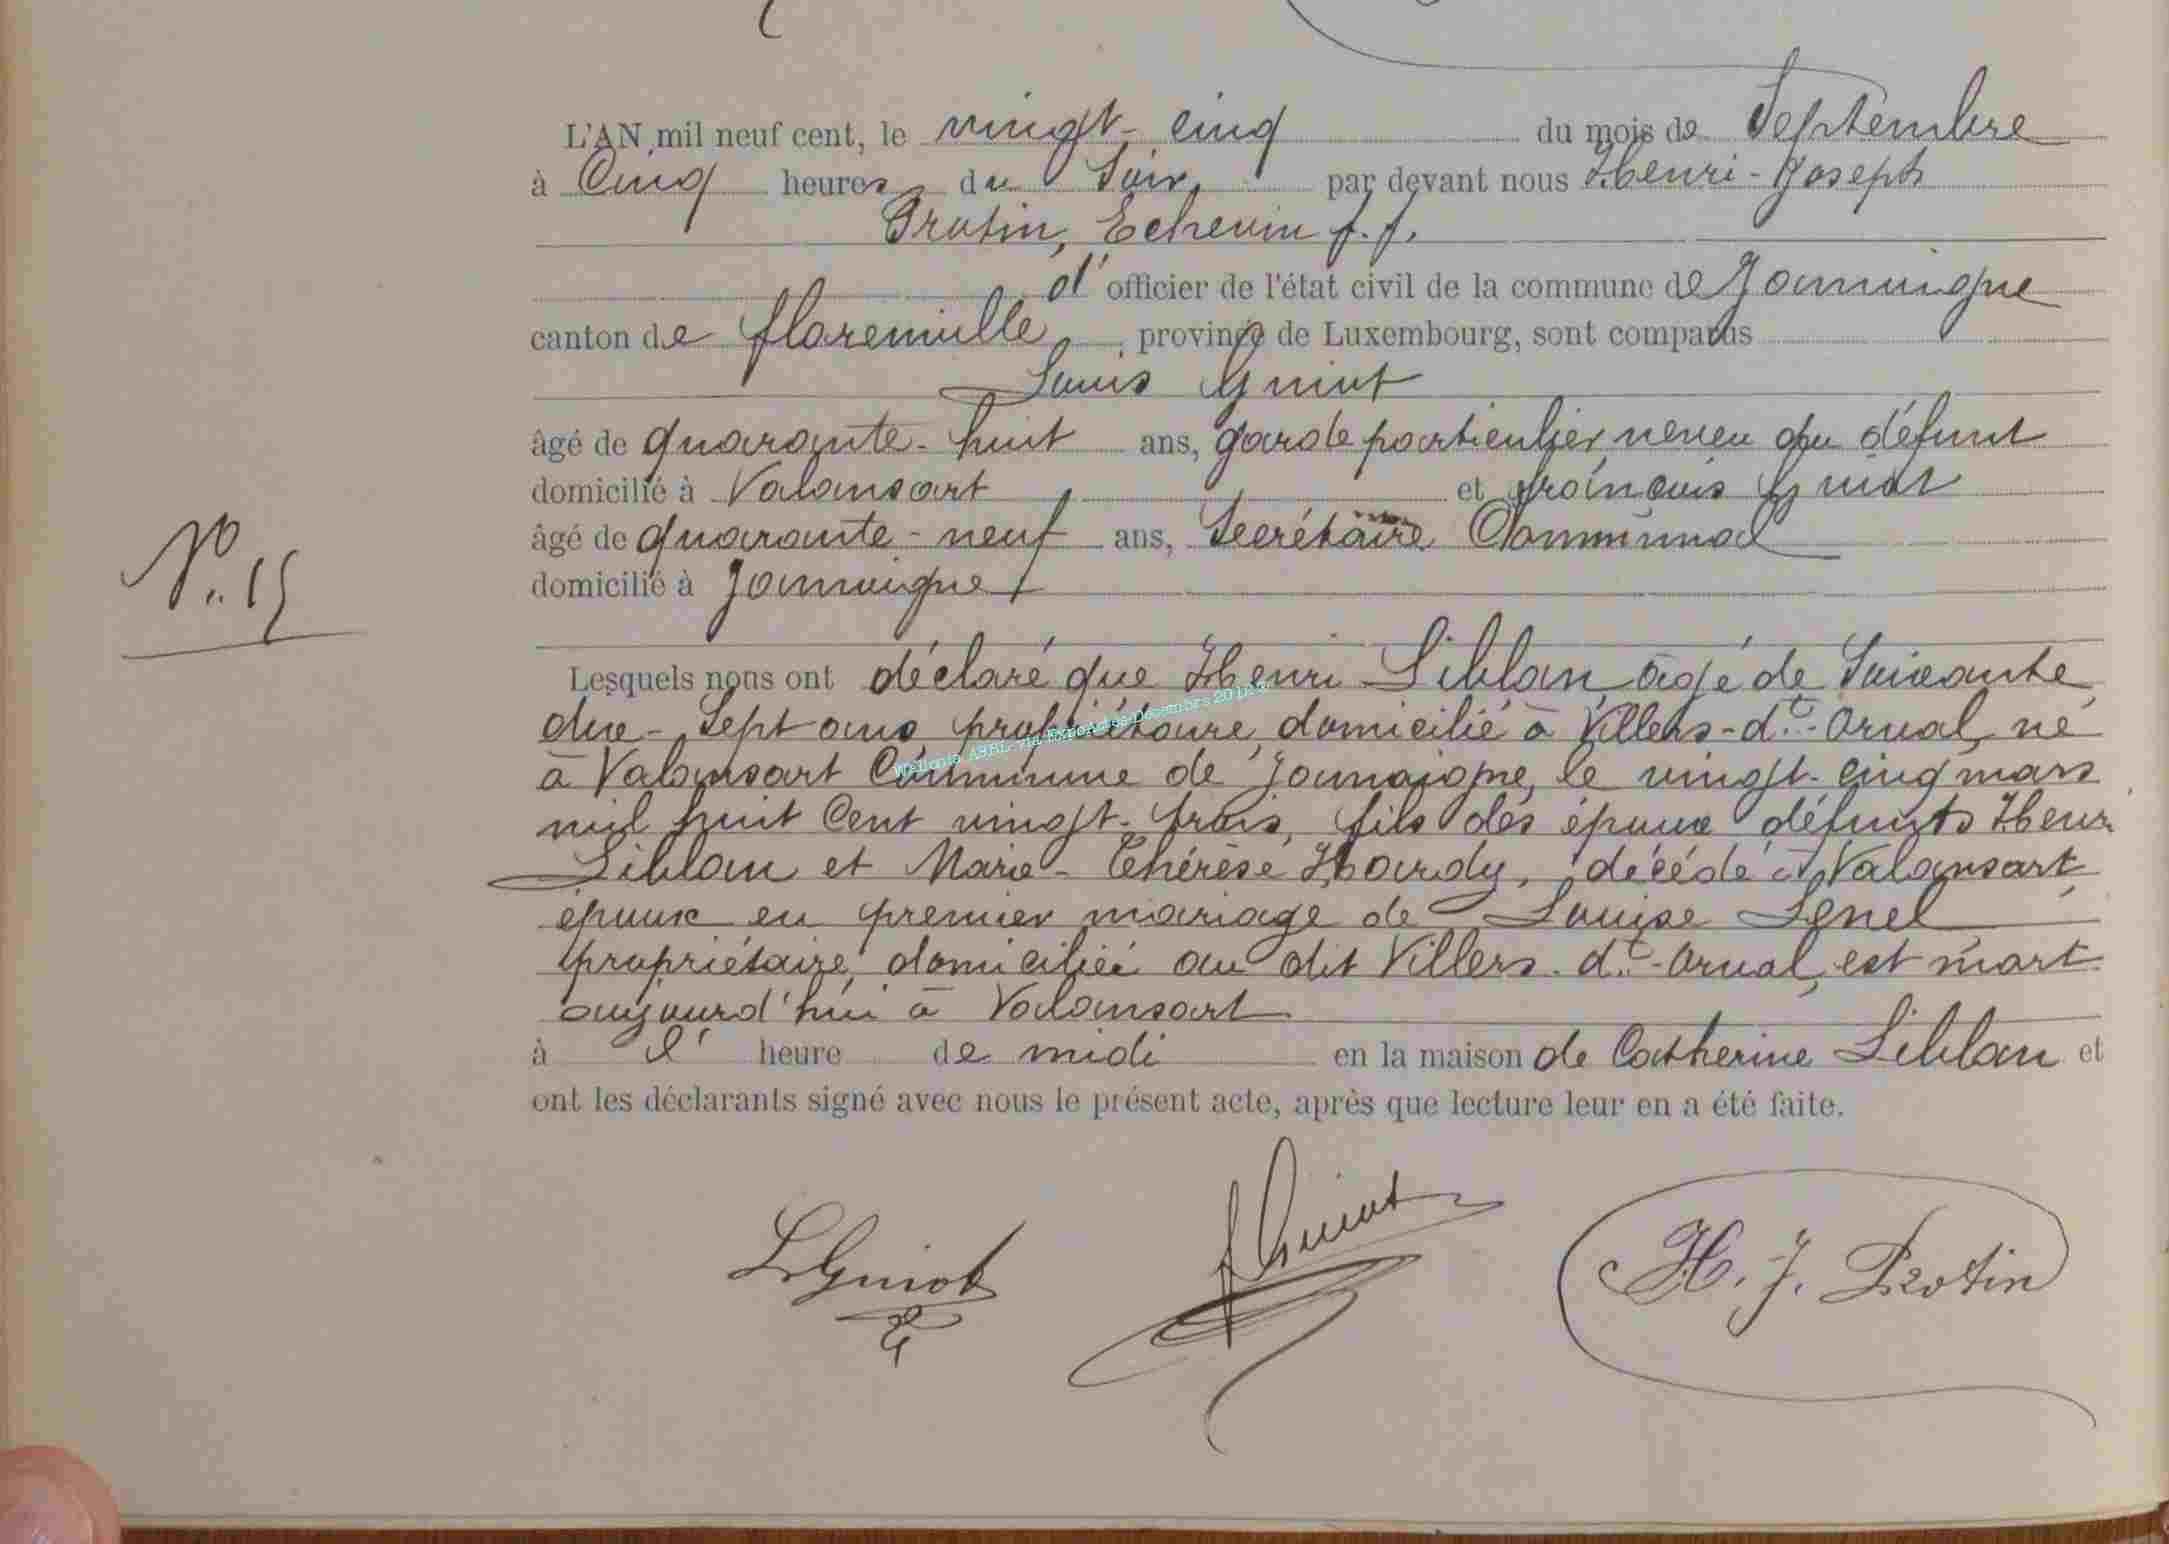 L'AN mil neuf cent, le vingt-cinq du mois de Septembre
à Cinq heures du Soir, par devant nous Henri-Joseph
Protin, Echevin f.f.
d'officier de l'état civil de la commune de Jamoigne
canton de Florenville, province de Luxembourg, sont comparus
Louis Guiot
âgé de quarante-huit ans, garde particulier, neveu du défunt
domicilié à Valansart et françois Guiot
âgé de quarante-neuf ans, Secrétaire Communal
domicilié à Jamoigne
N° 15
Lesquels nous ont déclaré que Henri Liblan, âgé de Soixante
dix-Sept ans propriétaire, domicilié à Villers-dt-Orval, né
à Valansart Commune de Jamoigne, le vingt-cinq mars
mil huit Cent vingt-trois, fils des époux défunts Henri
Liblan et Marie-Thérèse Hardy, décédé à Valansart,
époux en premier mariage de Louise Lenel
propriétaire, domiciliée au dit Villers-dt-Orval, est mort
aujourd'hui à Valansart
à l' heure de midi en la maison de Catherine Liblan et
ont les déclarants signé avec nous le présent acte, après que lecture leur en a été faite.
L. Guiot f Guiot H. J. Protin
Wallonia ASBL via ExpoActes Décembre 2012